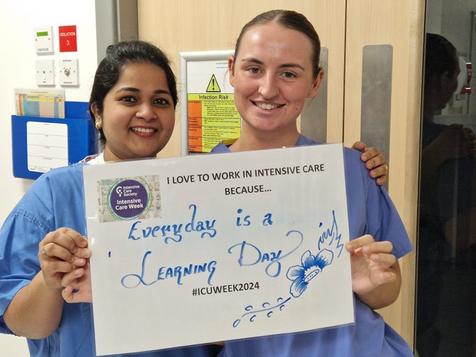 ISOLATE
Infection Risk
Intensive
Care
Society
Intensive
Care Week
I LOVE TO WORK IN INTENSIVE CARE
BECAUSE...
Everyday is a
Learning Day
#ICUWEEK2024